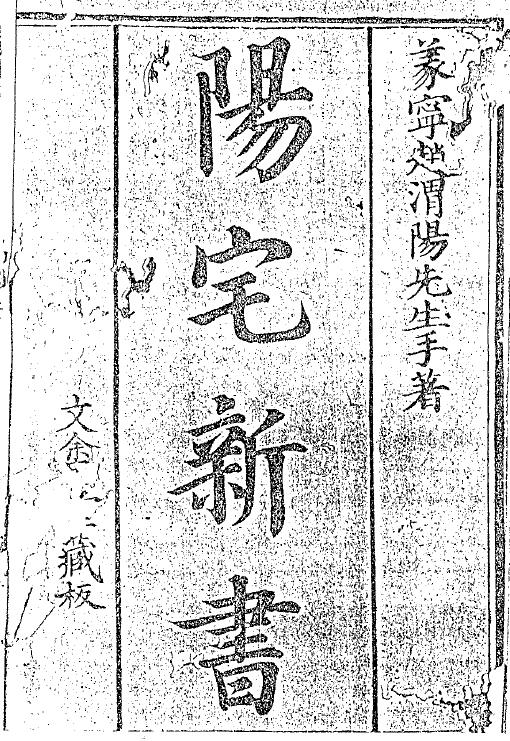 寧趙渭陽先生手著
陽宅新書
文金 藏板